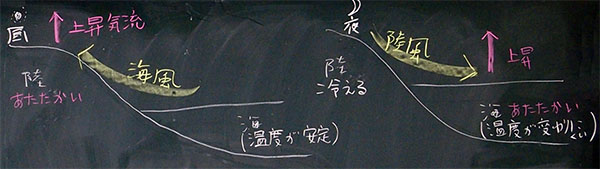 昼
上昇気流
海風
陸
あたたかい
海
(温度が安定)
夜
陸風
上昇
陸
冷える
海 あたたかい
(温度が変わりにくい)